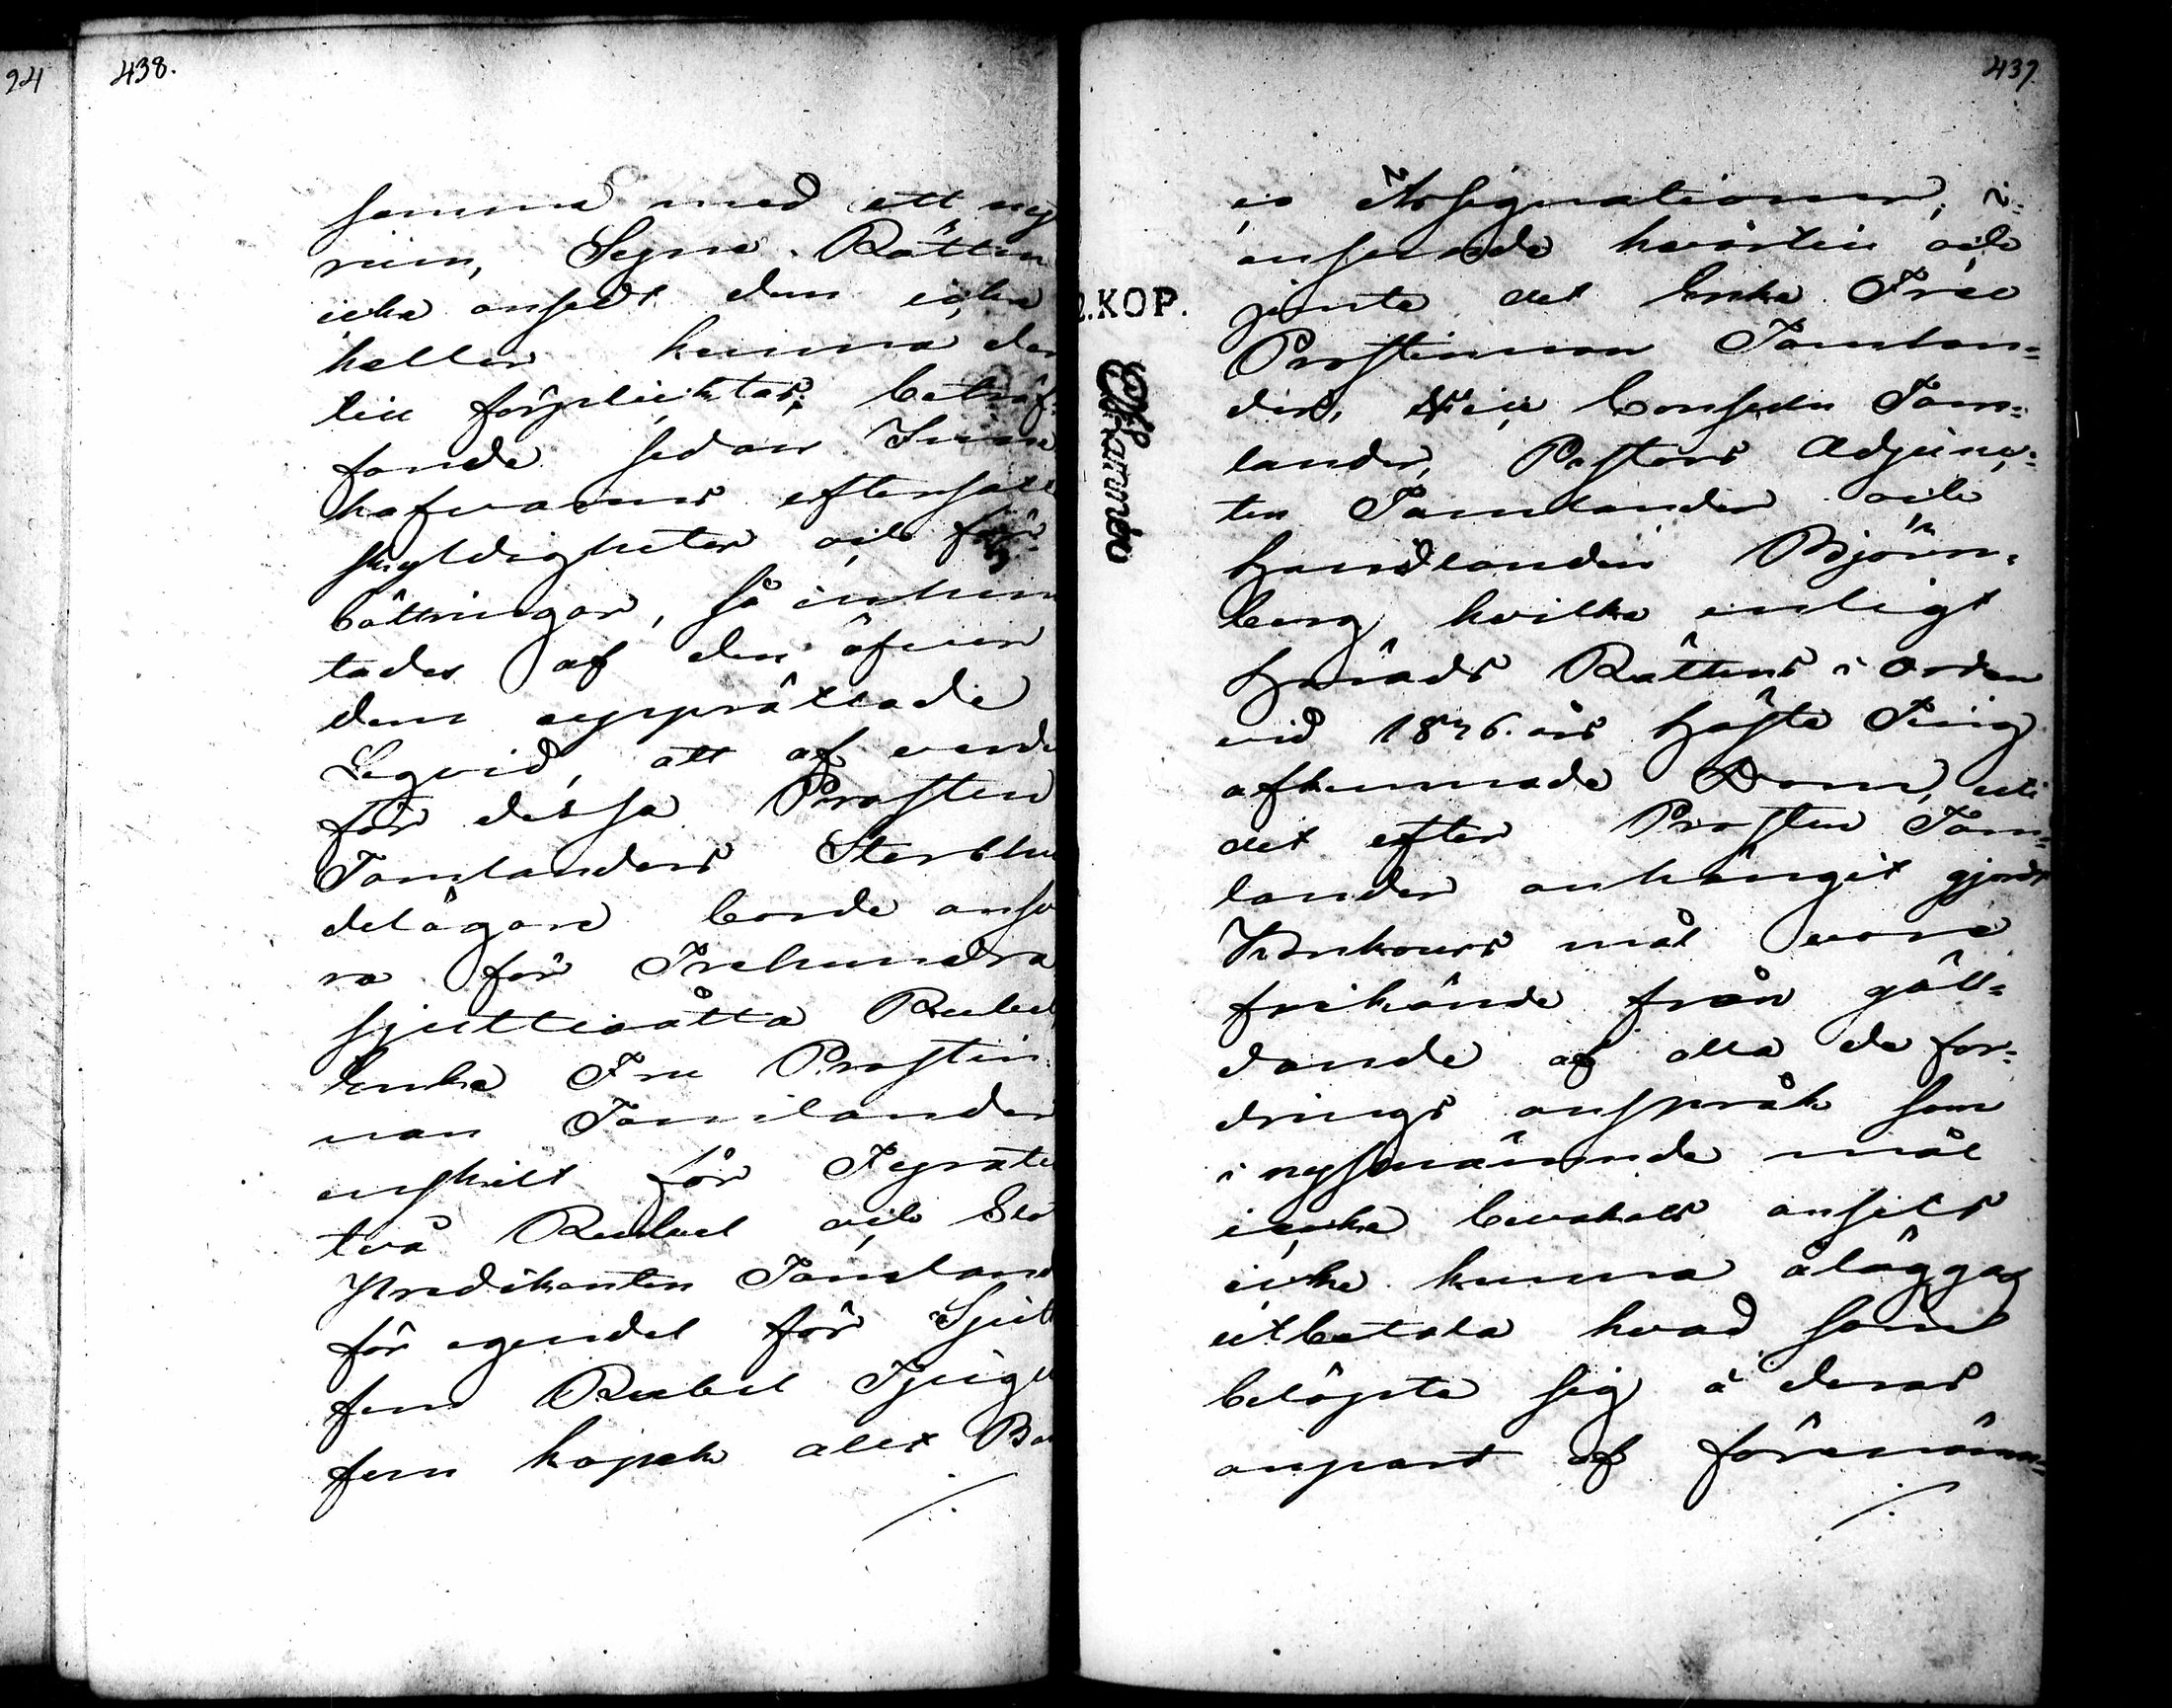 24
438.
samma med ett ny
rum, Syne Rätten
icke ansedt den icke
heller kunna der
till förpliktas; beträf-
fande sedan Inne
hafvarens eftersatt
skyldigheter och för-
bättringar, så inhem
tades af den öfver
dem upprättade
Liqvid, att af
för dessa Prosten
Tamlanders Sterbhu
delägare borde ansv
ra för Trehundra
sjuttioåtta Rubel
Enke Fru Prostin
nan Tamlander
enskilt för Fyrati
två Rubel och Sto
Predikanten Tamland
för egendel för Sjut
fem Rubel Tjugu
fem kopek allt Ba
./.
437.
io Assignationer, i-
anseende hvartill och
jemte det Enke Fru
Prostinnan Tamlan-
der, Vice Consuln Tam-
lander, Pastors Adjunc-
ten Tamlander och
Handlanden Björn-
berg hvilka enligt
Härads Rättens i orten
vid 1836 års Höste Ting
afkunnade Dom, uti
det efter Prosten Tam-
lander anhängit gjorde
Konkours mål vore
frikände från gäll-
dande af alla de for-
drings anspråk som
i nyssnämnde mål
icke bevakats ansets
icke kunna åläggas
utbetala hvad som
belöpte sig å deras
anpart af förenämn-
./.
2.KOP.